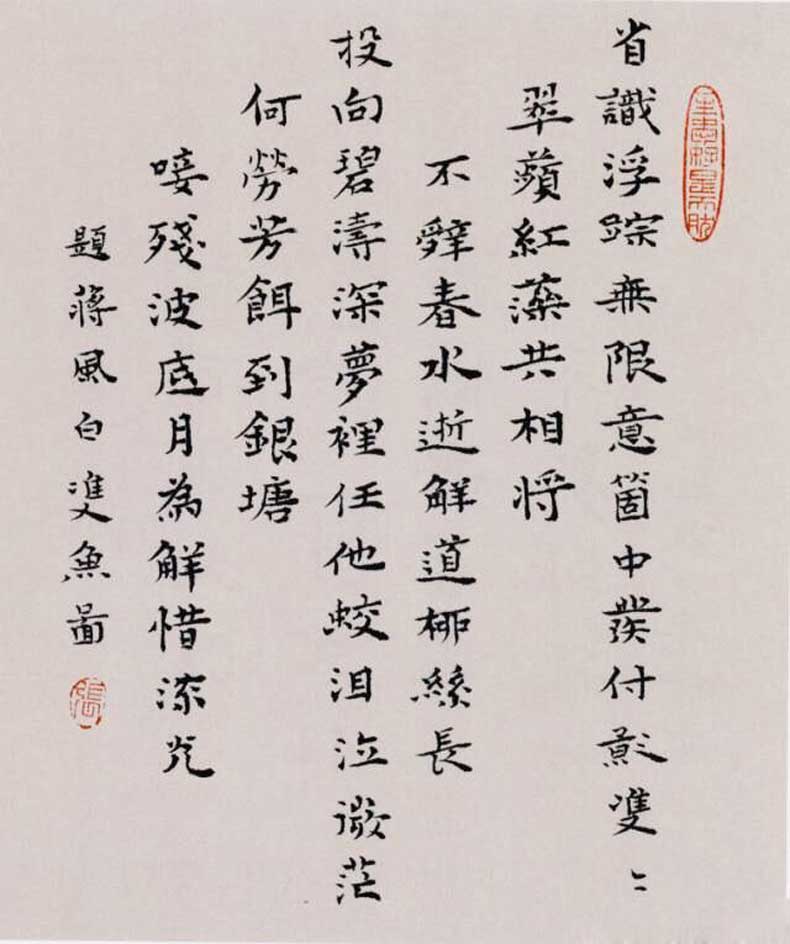 省識浮踪無限意箇中發付影雙〻
翠蘋紅藻共相將
不辭春水逝觧道柳絲長
投向碧濤深夢裡任他蛟泪泣微茫
何勞芳餌到銀塘
唼殘波底月為觧惜流光
題蔣風白雙魚圖
張